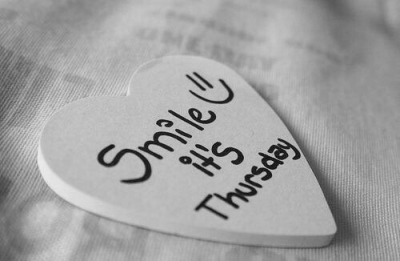 Smile =)
it's
Thursday